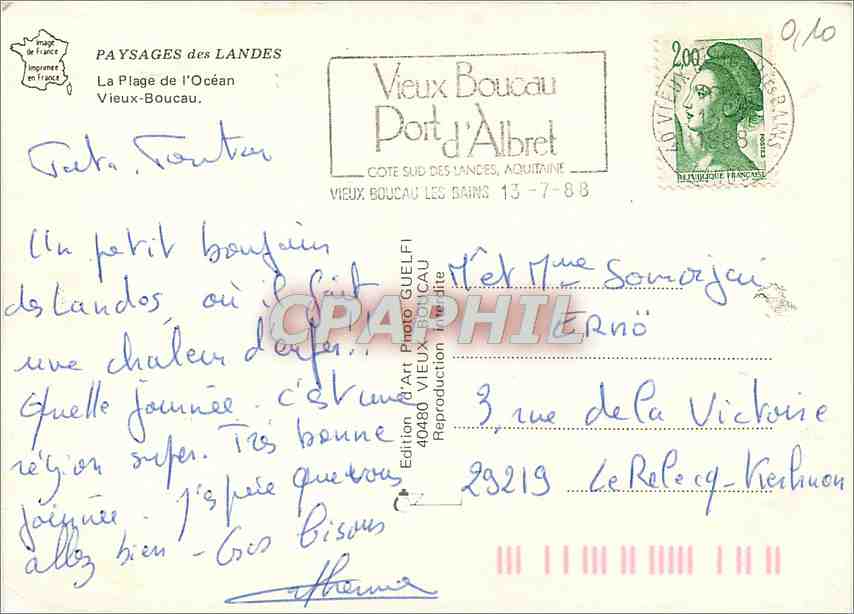 Image
de France
Imprimée
en France
PAYSAGES des LANDES
La Plage de l'Océan
Vieux-Boucau.
Vieux Boucau
Port d'Albret
COTE SUD DES LANDES, AQUITAINE
VIEUX BOUCAU LES BAINS 13-7-88
2,00
POSTES
REPUBLIQUE FRANÇAISE
40 VIEUX BAINS
0,10
Tata, Tonton
Un petit bonjour
des Landes, où il fait
une chaleur d'enfer!!
Quelle journée. c'est une
région super. Très bonne
journée. J'espère que vous
allez bien - Gros bisous
Edition d'Art Photo GUELFI
40480 VIEUX-BOUCAU
Reproduction interdite
CPAPHIL
M et Mme Somorjai
ERNÖ
3, rue de la Victoire
29219 Le Relecq-Kerhuon